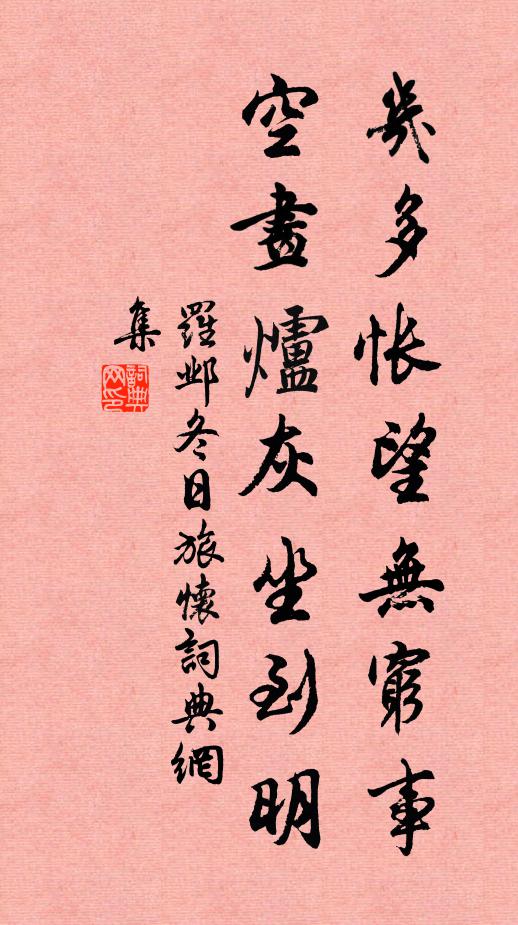 幾多悵望無窮事
空畫爐灰坐到明
羅鄴冬日旅懷詞典網
集
詞典網印